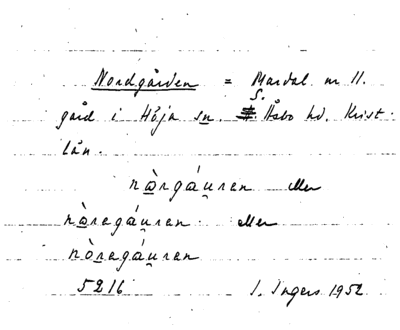 Nordgården = Mardal nr 11.
gård i Höja sn. S. Åsbo hd. Krist.
län.
nàrgáu̯ren eller
nàregáu̯ren eller
nòregáu̯ren
5216 I. Ingers 1952